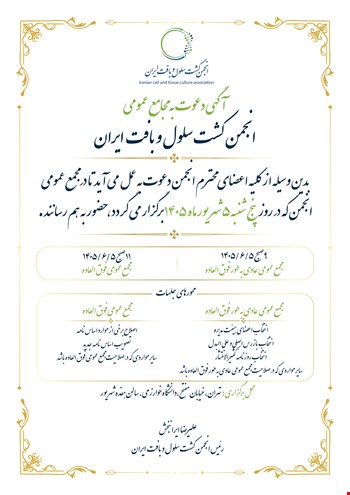 انجمن کشت سلول و بافت ایران
Iranian cell and tissue culture association
آگهی دعوت به مجامع عمومی
انجمن کشت سلول و بافت ایران
بدین وسیله از کلیه اعضای محترم انجمن دعوت به عمل می آید تا در مجمع عمومی
انجمن که در روز پنج شنبه ۵ شهریور ماه ۱۴۰۵ برگزار می گردد، حضور به هم رسانند.
۹ صبح ۱۴۰۵/۶/۵
مجمع عمومی عادی به طور فوق العاده
۱۱ صبح ۱۴۰۵/۶/۵
مجمع عمومی فوق العاده
محورهای جلسات
مجمع عمومی عادی به طور فوق العاده
انتخاب اعضای هیئت مدیره
انتخاب بازرس اصلی و علی البدل
انتخاب روزنامه کثیرالانتشار
سایر مواردی که در صلاحیت مجمع عمومی عادی به طور فوق العاده باشد
مجمع عمومی فوق العاده
اصلاح برخی از مواد اساس نامه
تصویب اساس نامه جدید
سایر مواردی که در صلاحیت مجمع عمومی فوق العاده باشد
محل برگزاری: تهران، خیابان مفتح، دانشگاه خوارزمی، سالن هفده شهریور
علیرضا ایرانبخش
رئیس انجمن کشت سلول و بافت ایران